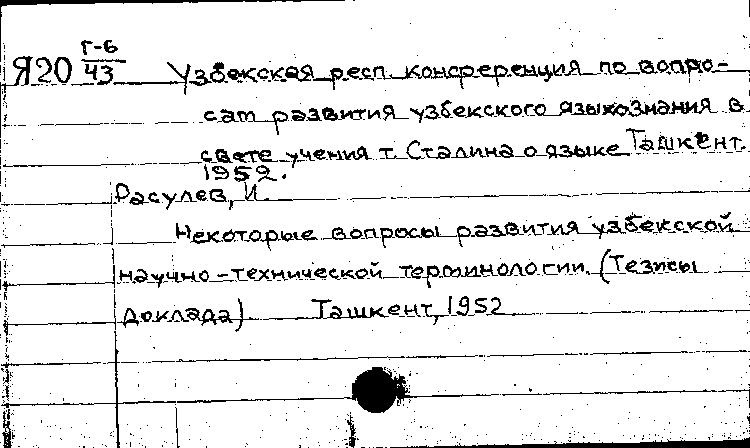 Г-6
Я20 43 Узбекская респ. конференция по вопро-
сам развития узбекского языкознания в
свете учения т. Сталина о языке Ташкент.
1952.
Расулев, И.
Некоторые вопросы развития узбекской
научно-технической терминологии. (Тезисы
доклада) Ташкент, 1952